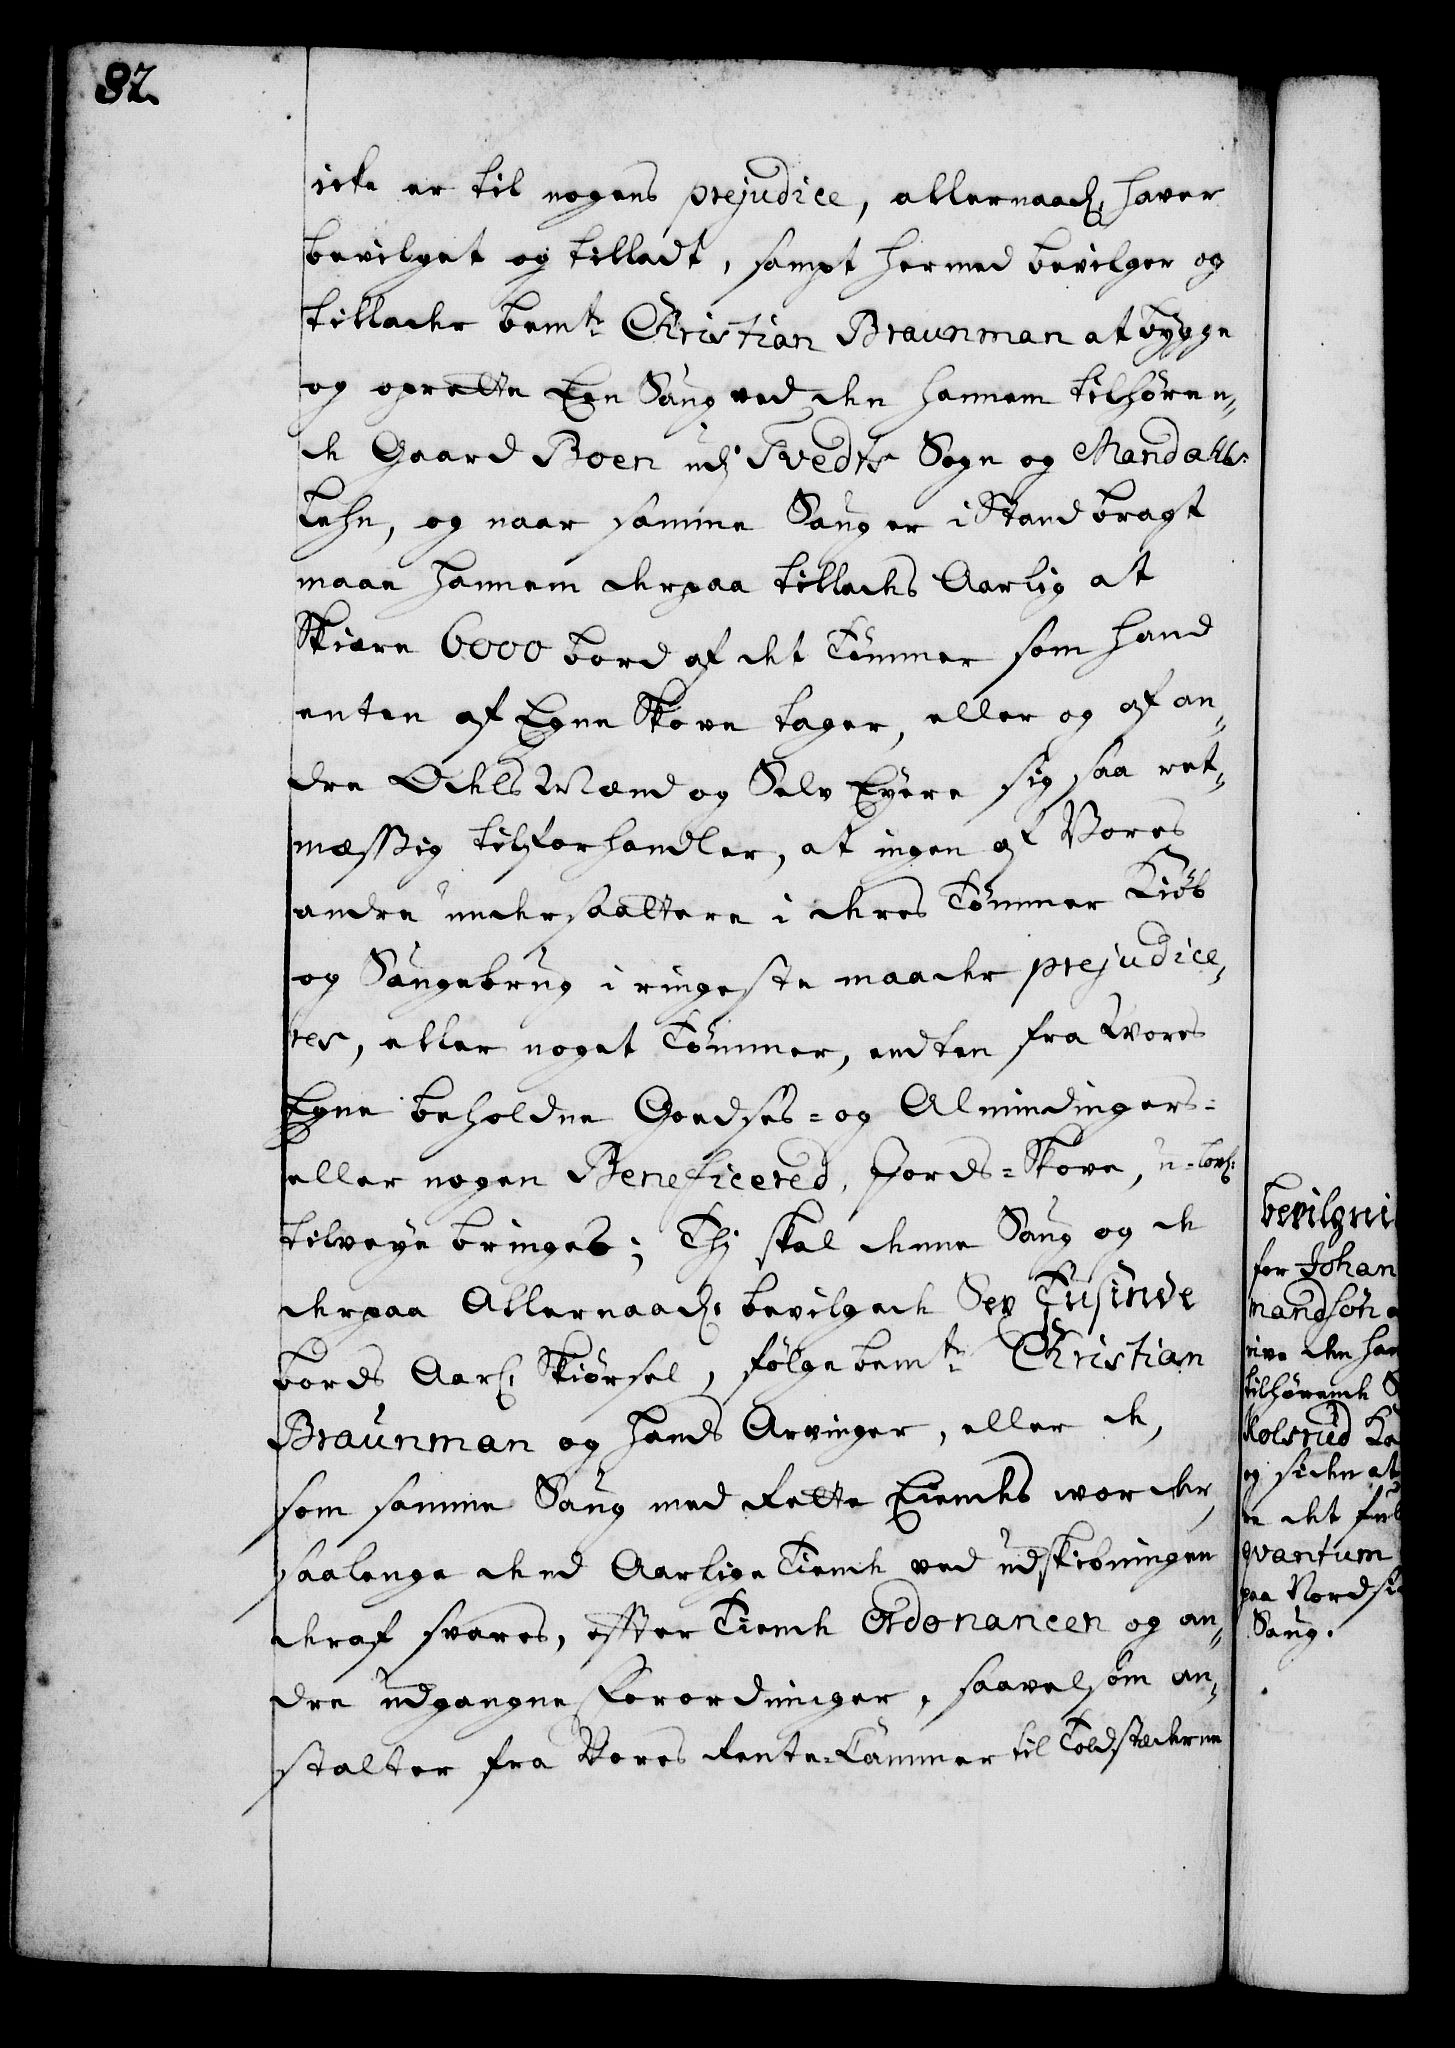 82.
icke er til nogens prejudice, allernaad: haver
bevilget og tilladt, sampt hermed bevilger og
tillader bemte Christian Braunman at bygge
og oprette Een Saug ved den hannem tilhören¬
de Gaard Boen udj Tvedts Sogn og Mandahls
Lehn, og naar samme Saug er i Stand bragt
maae hannem derpaa tillades Aarlig at
Skiere 6000 bord af det Tömmer som hand
enten af Egne Skove tager, eller og af an¬
dre Odels Mænd og Selv Eyere sig saa ret¬
mæssig tilforhandler, at ingen af Vores
andre undersaattere i deres Tömmer Kiöb
og Saugebrug i ringeste maader prejudice¬
res, eller noget Tömmer, endten fra Vores
Egne beholdne Goedses- og Almindingers-
eller nogen Beneficered Jords-Skove, u-lovl:
tilveye bringes; Thj skal denne Saug og de
derpaa Allernaad: bevilgede Sex Tusinde
bords Aarl: Skiörsel, fölge bemte Christian
Braunman og hands Arvinger, eller de,
som samme Saug med Rette Eiendes worder,
saalenge dend Aarlige Tiende ved udskibningen
deraf svares, effter Tiende Ordonancen og an¬
dre udgangne Forordninger, saavelsom an¬
stalter fra Vores Rente-Cammer til Toldstæderne
bevilgni
for Johan
mandsön
den
tilhörende S
Kolsrud
og siden at
det ful
qvantum
paa Nordsi
Saug.